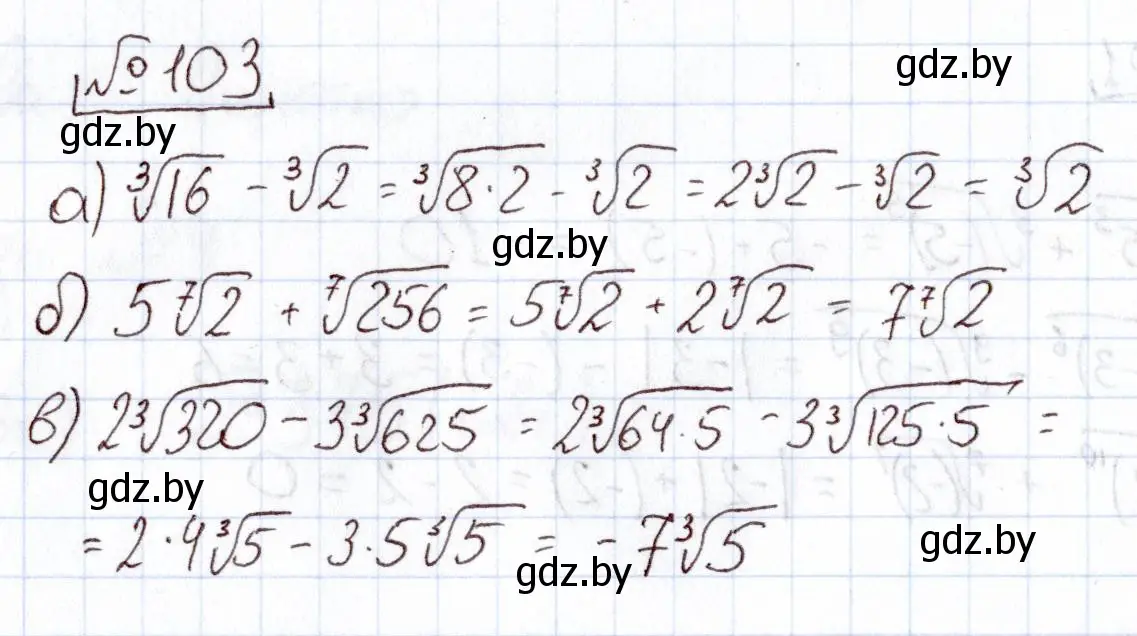 №103
gdz.by
gdz.by
а) ∛16 - ∛2 = ∛8·2 - ∛2 = 2∛2 - ∛2 = ∛2
gdz.by
б) 5⁷√2 + ⁷√256 = 5⁷√2 + 2⁷√2 = 7⁷√2
в) 2∛320 - 3∛625 = 2∛64·5 - 3∛125·5 =
gdz.by
= 2·4∛5 - 3·5∛5 = -7∛5
gdz.by
gdz.by